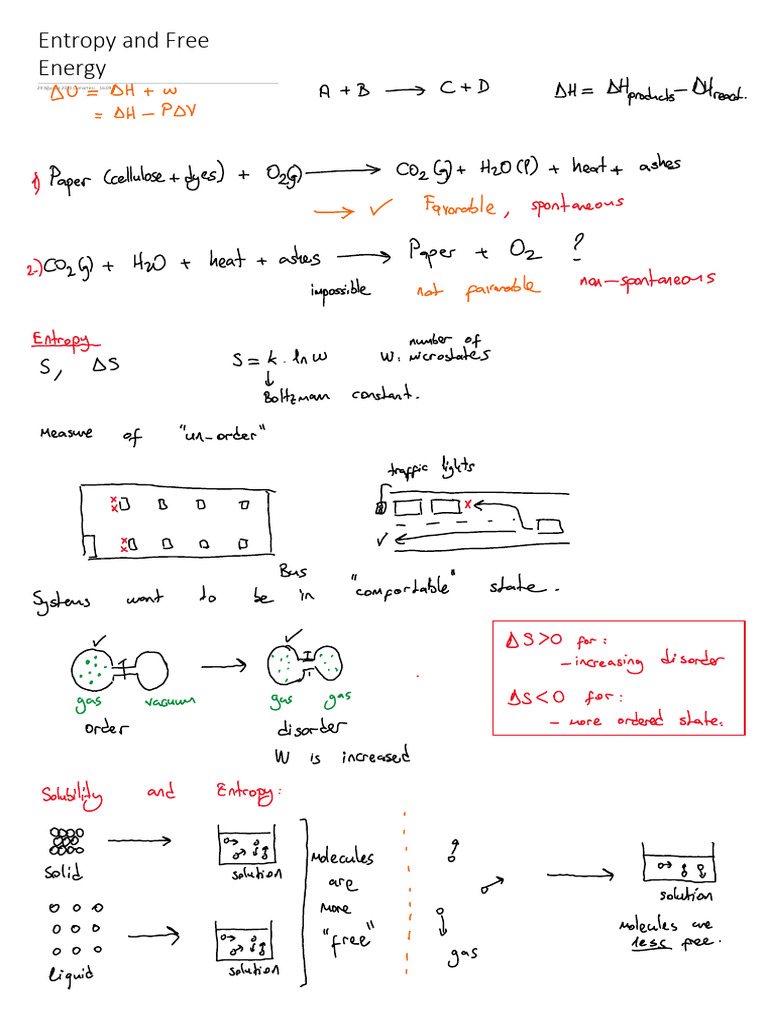 Entropy and Free
Energy
ΔU = ΔH + w
= ΔH - PΔV
A + B → C + D
ΔH = ΔHproducts - ΔHreact.
1) Paper (cellulose + dyes) + O2(g) → CO2(g) + H2O(l) + heat + ashes
→ ✓ Favorable, spontaneous
2-) CO2(g) + H2O + heat + ashes → Paper + O2 ?
impossible not favorable non-spontaneous
Entropy
S, ΔS
S = k . ln w
W: number of
microstates
↓
Boltzman constant.
Measure of "un-order"
traffic lights
Bus
Systems want to be in "comfortable" state.
gas vacuum
order
→
gas gas
disorder
W is increased
ΔS>0 for:
- increasing disorder
ΔS<0 for:
- more ordered state.
Solubility and Entropy:
solid
→
solution
liquid
→
solution
Molecules
are
more
"free"
gas
→
solution
Molecules are
less free.